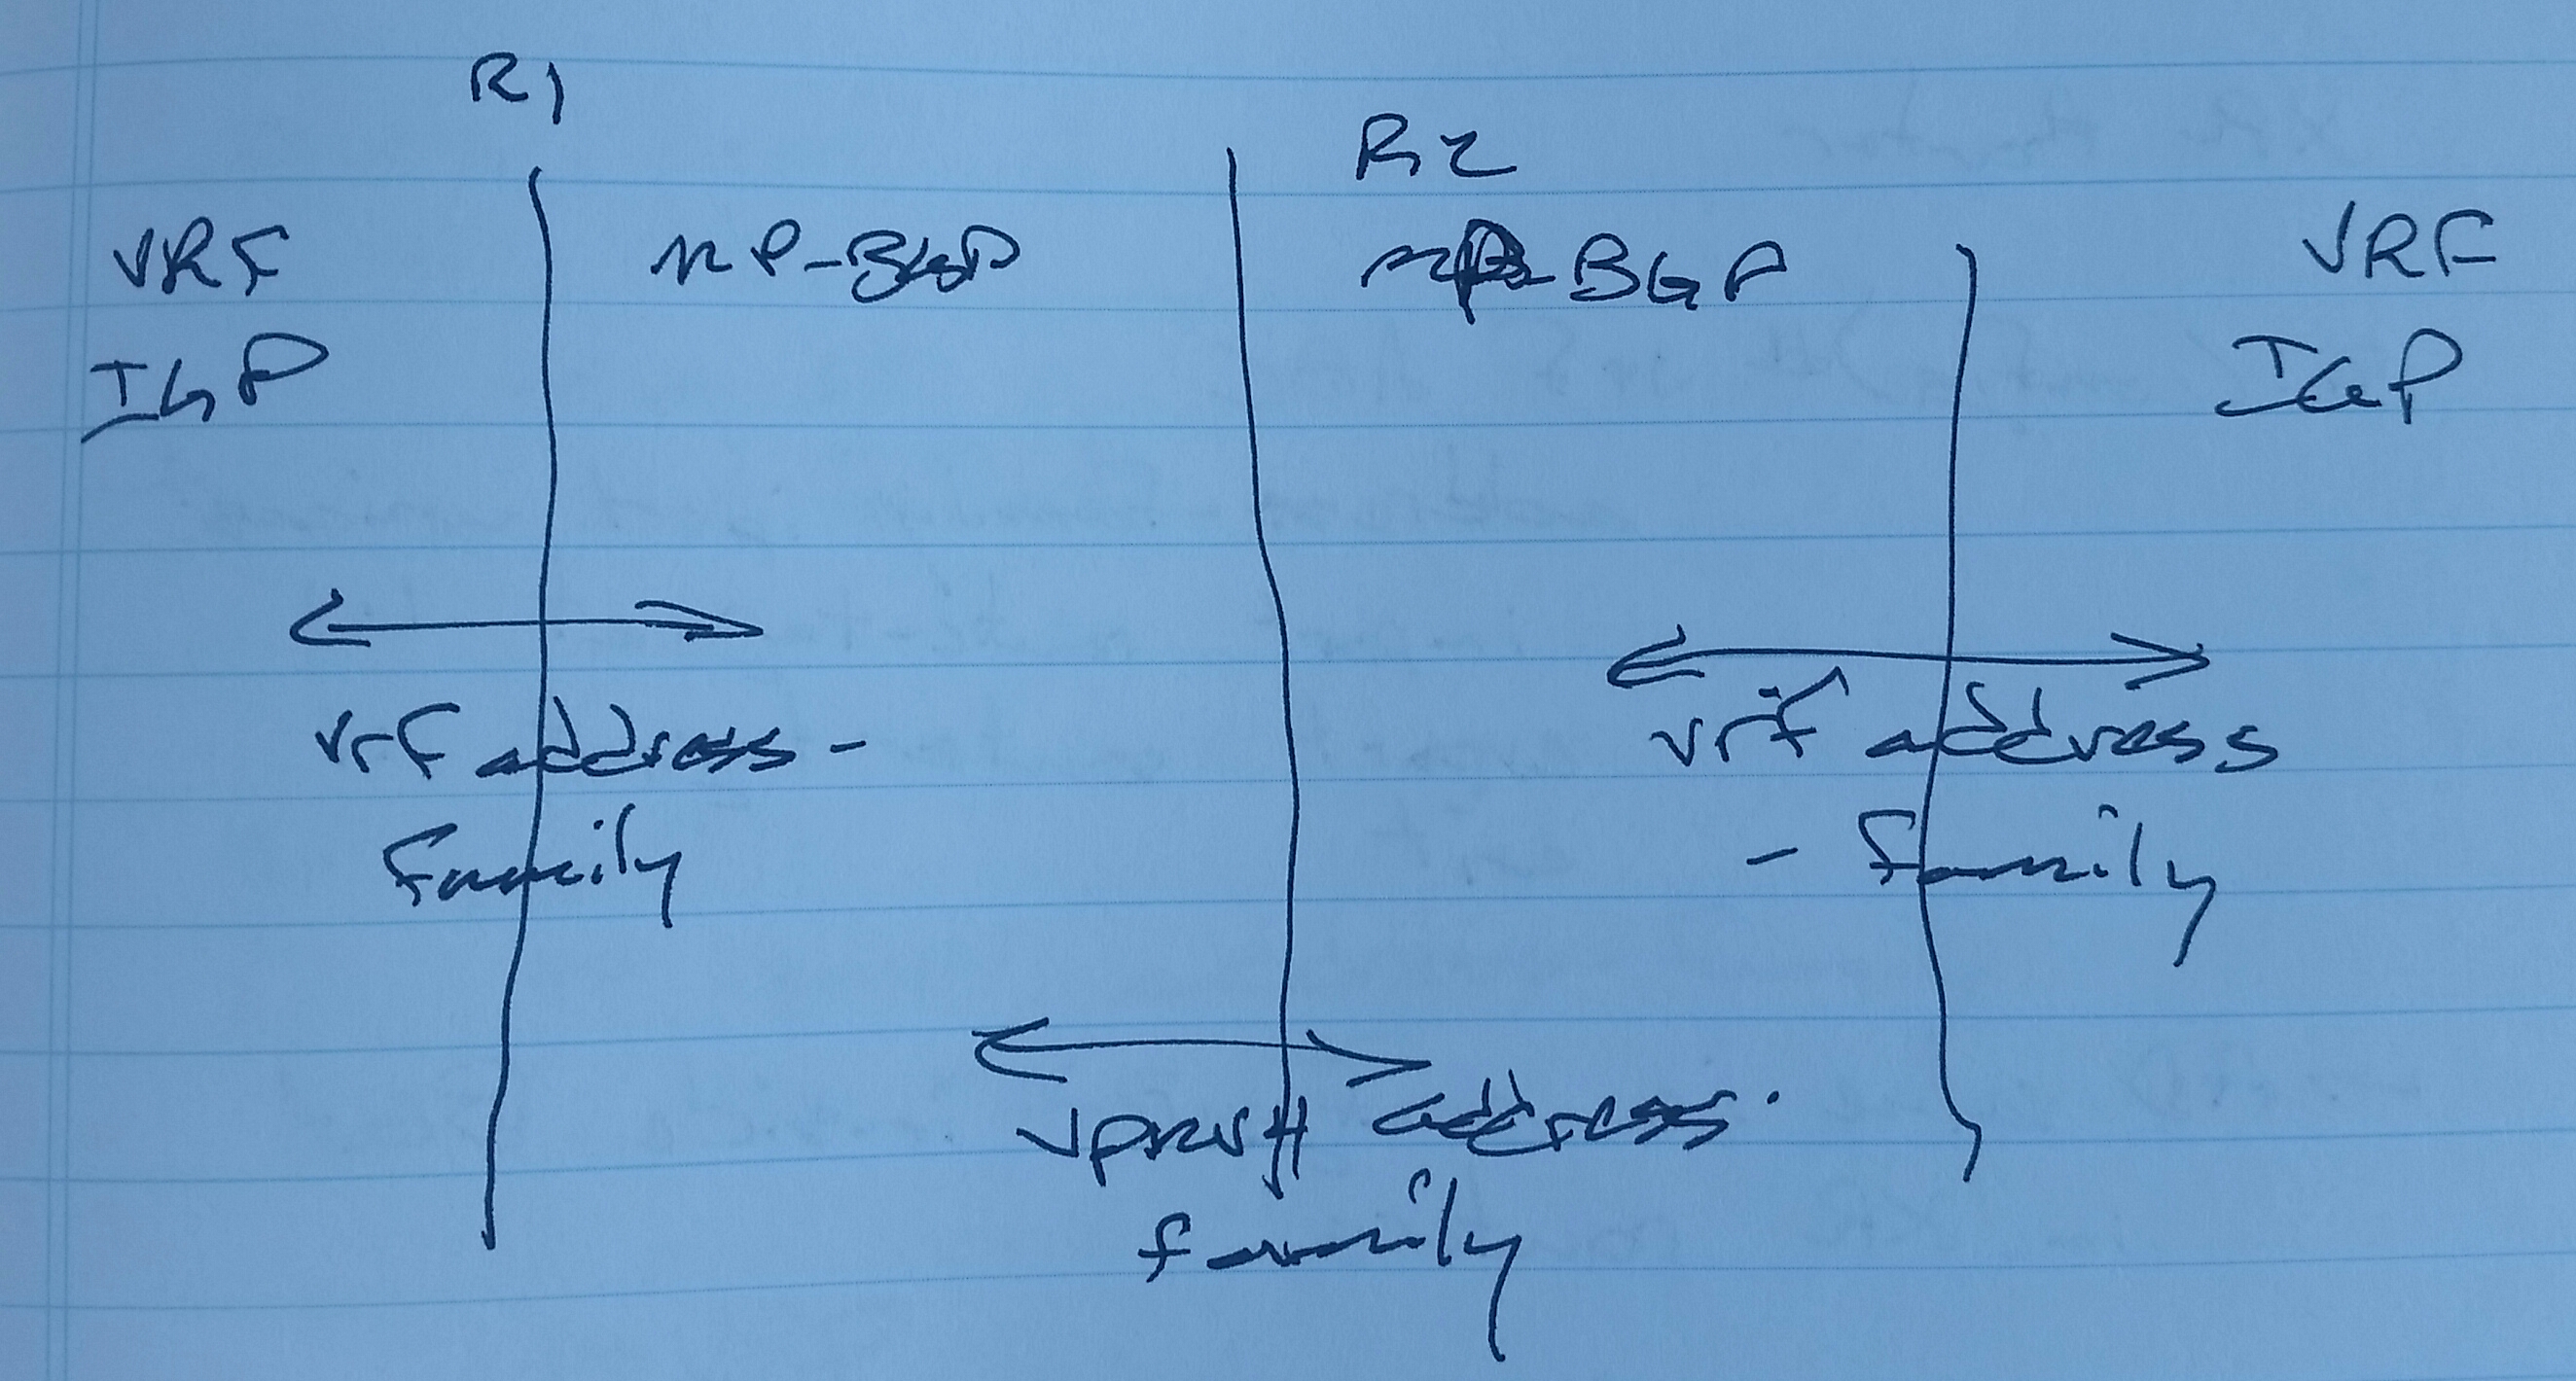 R1
R2
VRF MP-BGP MP-BGP VRF
IGP IGP
vrf address-
family
vrf address
- family
vpnv4 address-
family